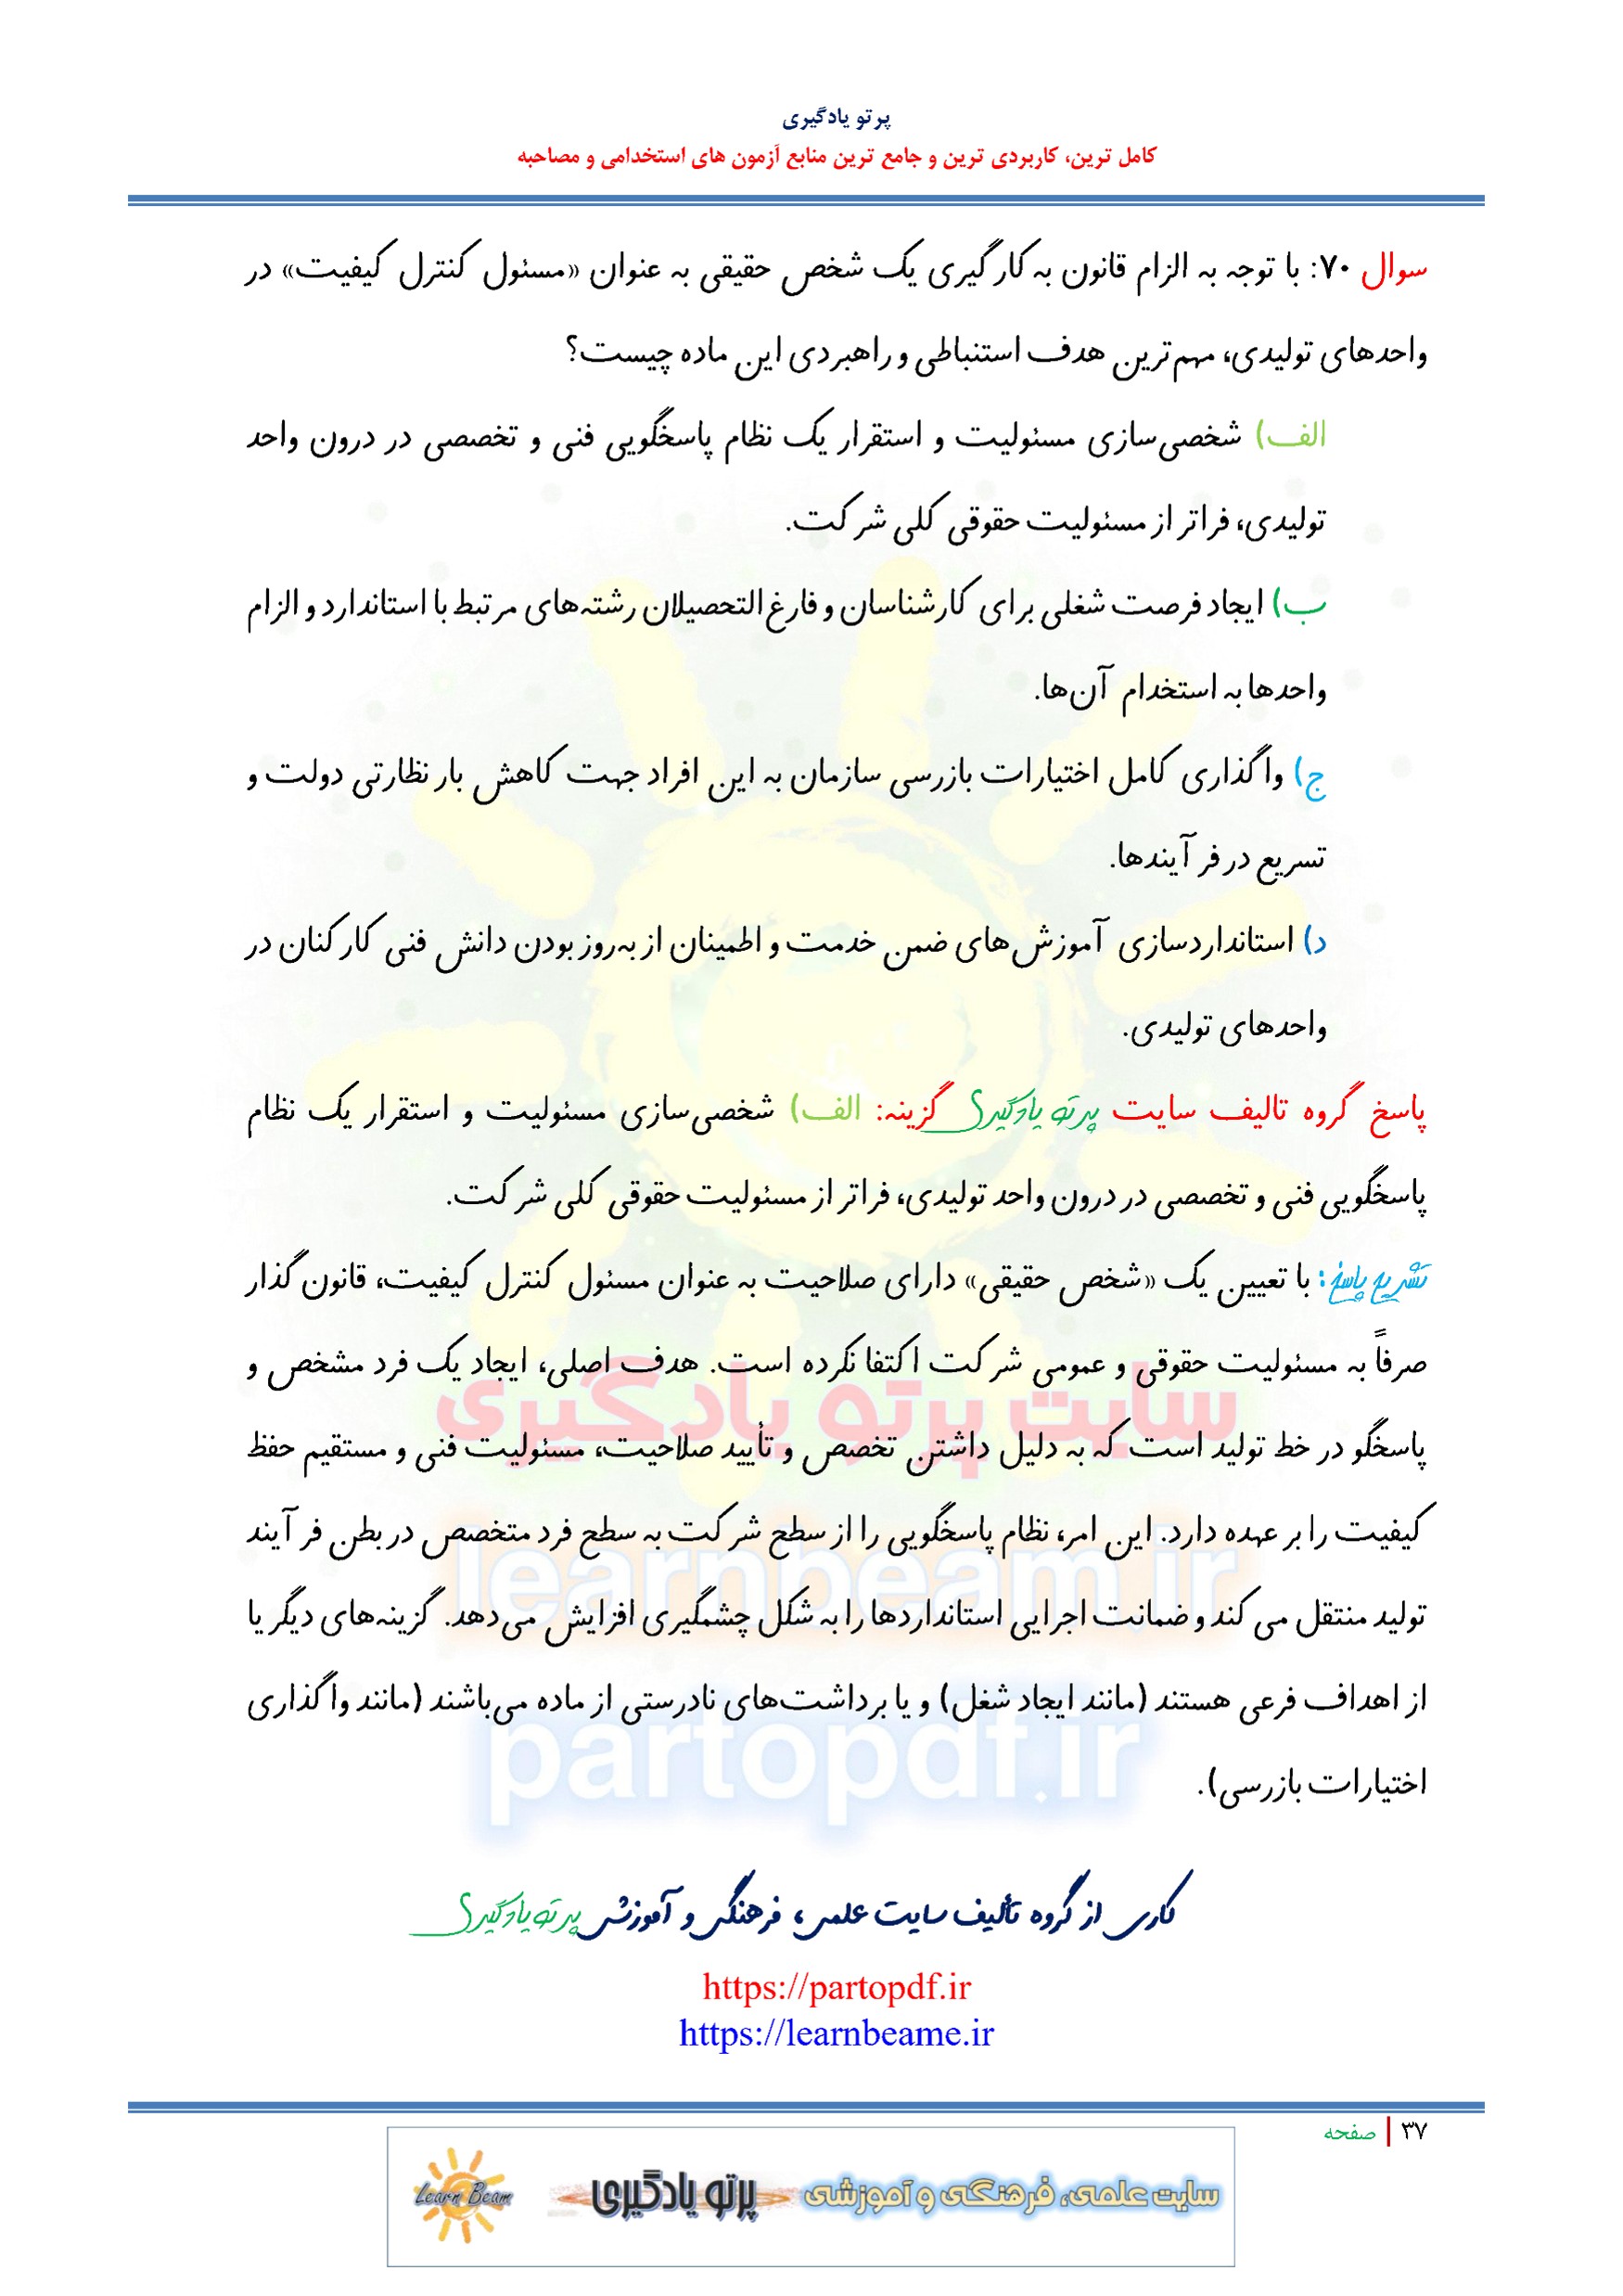 پرتو یادگیری
کامل ترین، کاربردی ترین و جامع ترین منابع آزمون های استخدامی و مصاحبه
سوال ۷۰: با توجه به الزام قانون به کارگیری یک شخص حقیقی به عنوان «مسئول کنترل کیفیت» در
واحدهای تولیدی، مهم‌ترین هدف استنباطی و راهبردی این ماده چیست؟
الف) شخصی‌سازی مسئولیت و استقرار یک نظام پاسخگویی فنی و تخصصی در درون واحد
تولیدی، فراتر از مسئولیت حقوقی کلی شرکت.
ب) ایجاد فرصت شغلی برای کارشناسان و فارغ‌التحصیلان رشته‌های مرتبط با استاندارد و الزام
واحدها به استخدام آن‌ها.
ج) واگذاری کامل اختیارات بازرسی سازمان به این افراد جهت کاهش بار نظارتی دولت و
تسریع در فرآیندها.
د) استانداردسازی آموزش‌های ضمن خدمت و اطمینان از به‌روز بودن دانش فنی کارکنان در
واحدهای تولیدی.
پاسخ گروه تالیف سایت پرتو یادگیری گزینه: الف) شخصی‌سازی مسئولیت و استقرار یک نظام
پاسخگویی فنی و تخصصی در درون واحد تولیدی، فراتر از مسئولیت حقوقی کلی شرکت.
تشریح پاسخ: با تعیین یک «شخص حقیقی» دارای صلاحیت به عنوان مسئول کنترل کیفیت، قانون گذار
صرفاً به مسئولیت حقوقی و عمومی شرکت اکتفا نکرده است. هدف اصلی، ایجاد یک فرد مشخص و
پاسخگو در خط تولید است که به دلیل داشتن تخصص و تأیید صلاحیت، مسئولیت فنی و مستقیم حفظ
کیفیت را بر عهده دارد. این امر، نظام پاسخگویی را از سطح شرکت به سطح فرد متخصص در بطن فرآیند
تولید منتقل می کند و ضمانت اجرایی استانداردها را به شکل چشمگیری افزایش می‌دهد. گزینه‌های دیگر یا
از اهداف فرعی هستند (مانند ایجاد شغل) و یا برداشت‌های نادرستی از ماده می‌باشند (مانند واگذاری
اختیارات بازرسی).
سایت پرتو یادگیری
learnbeam.ir
partopdf.ir
کاری از گروه تألیف سایت علمی، فرهنگی و آموزشی پرتو یادگیری
https://partopdf.ir
https://learnbeame.ir
۳۷ | صفحه
سایت علمی، فرهنگی و آموزشی پرتو یادگیری Learn Beam